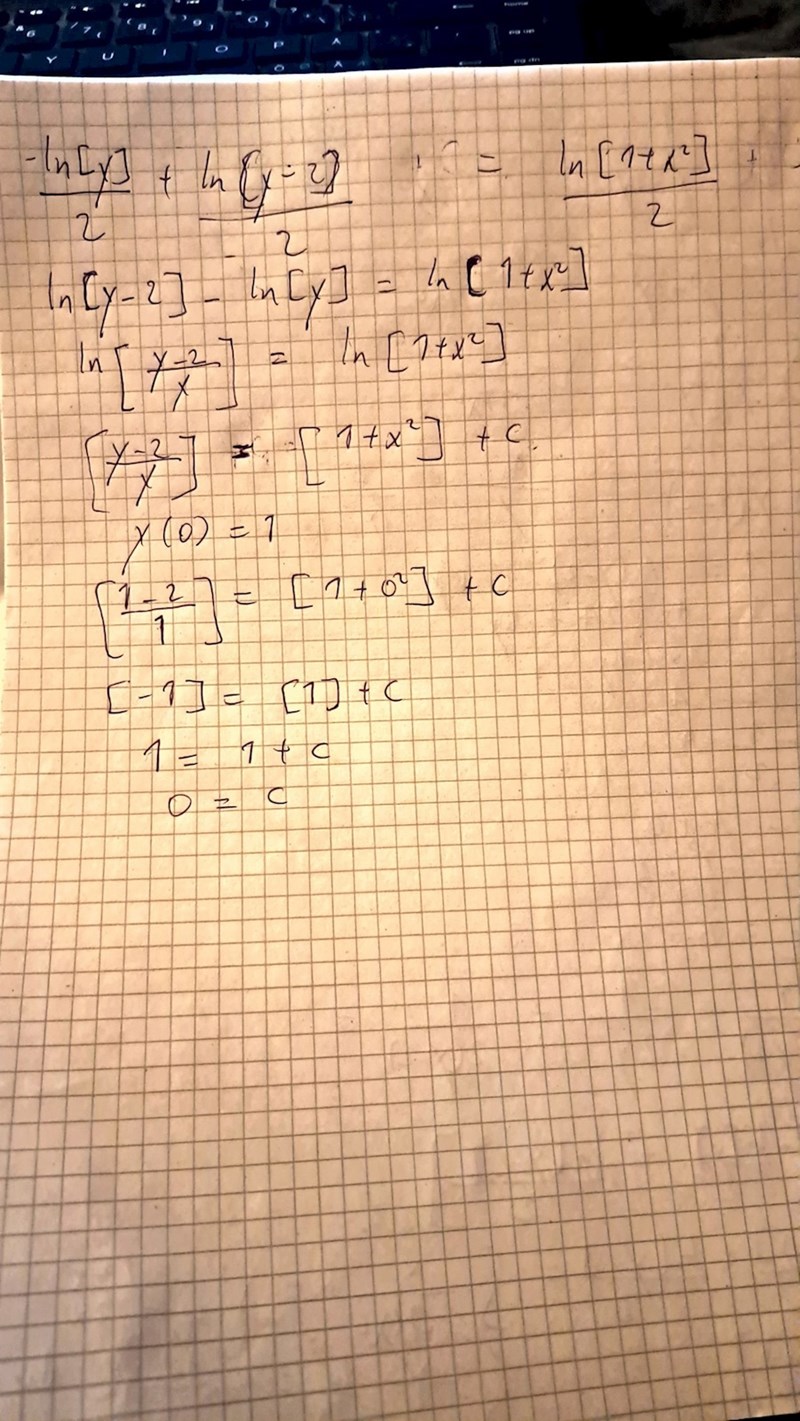 6 7 8 9 0
Y U I O P Å
-ln[y]/2 + ln[y-2]/2 = ln[1+x²]/2 +
ln[y-2] - ln[y] = ln[1+x²]
ln[y-2/y] = ln[1+x²]
[y-2/y] = [1+x²] + c
y(0) = 1
[1-2/1] = [1+0²] + c
[-1] = [1] + c
1 = 1 + c
0 = c